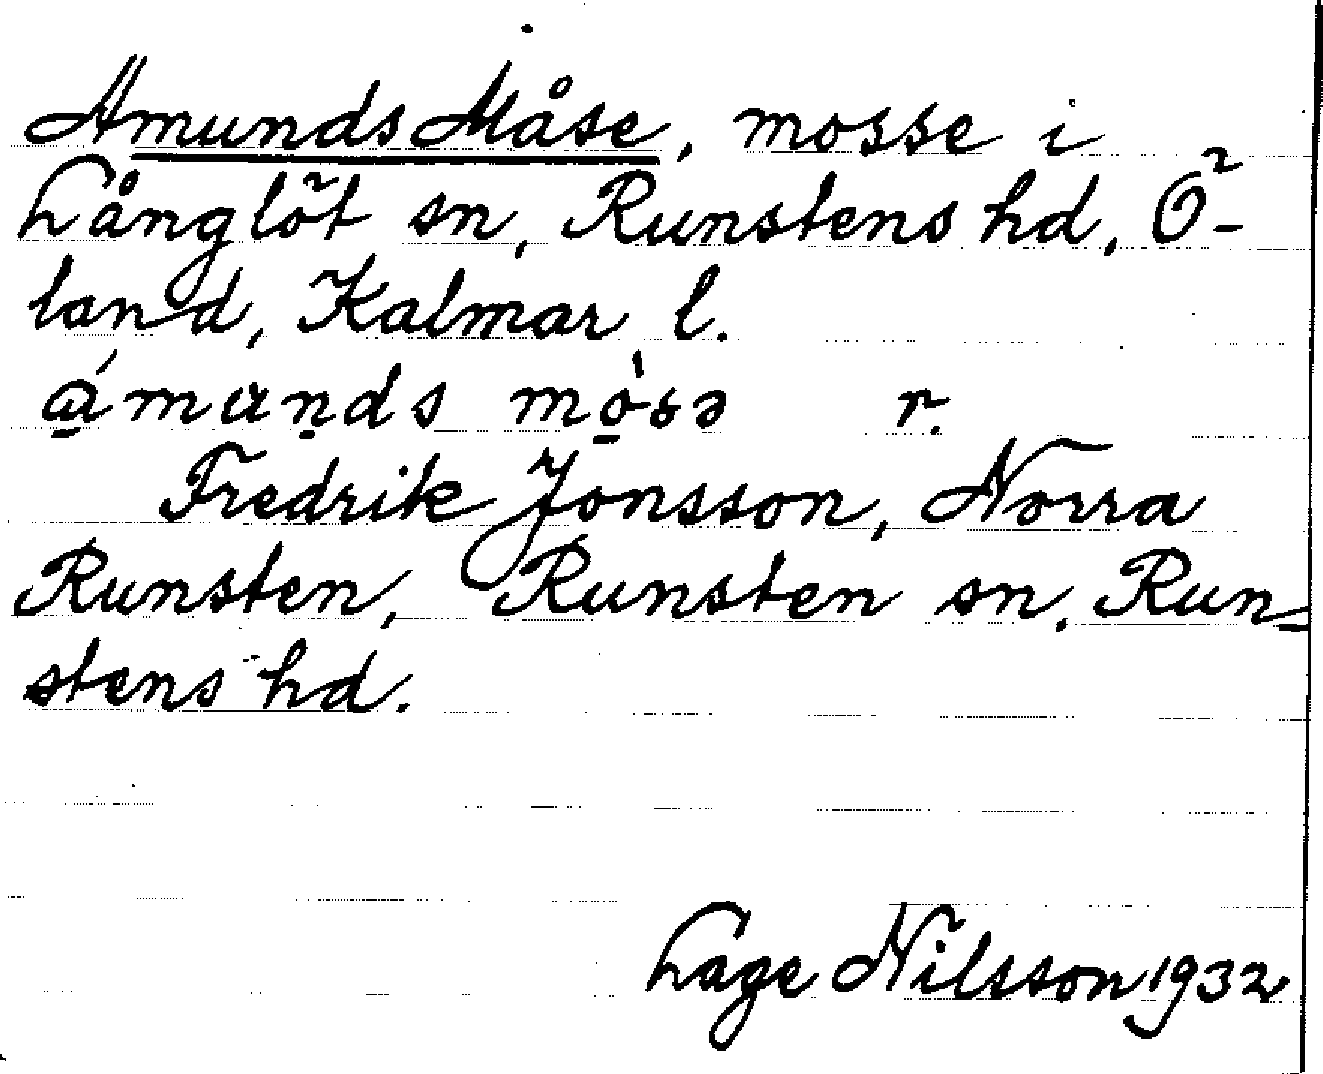 Amunds Måse, mosse i
Långlöt sn, Runstens hd, Ö-
land, Kalmar l.
ámunds mò̱sə r.
Fredrik Jonsson, Norra
Runsten, Runsten sn. Run-
stens hd.
Lage Nilsson 1932